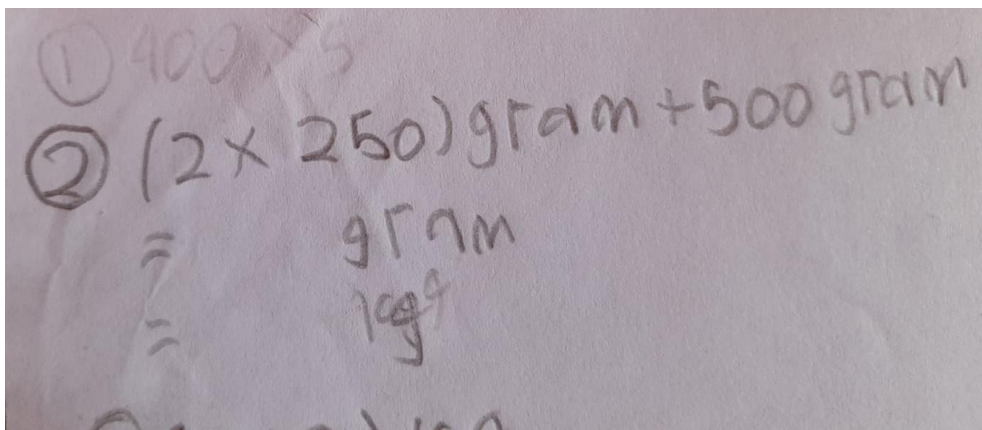 ① 400 × 5
② (2 × 250) gram + 500 gram
= gram
= kg